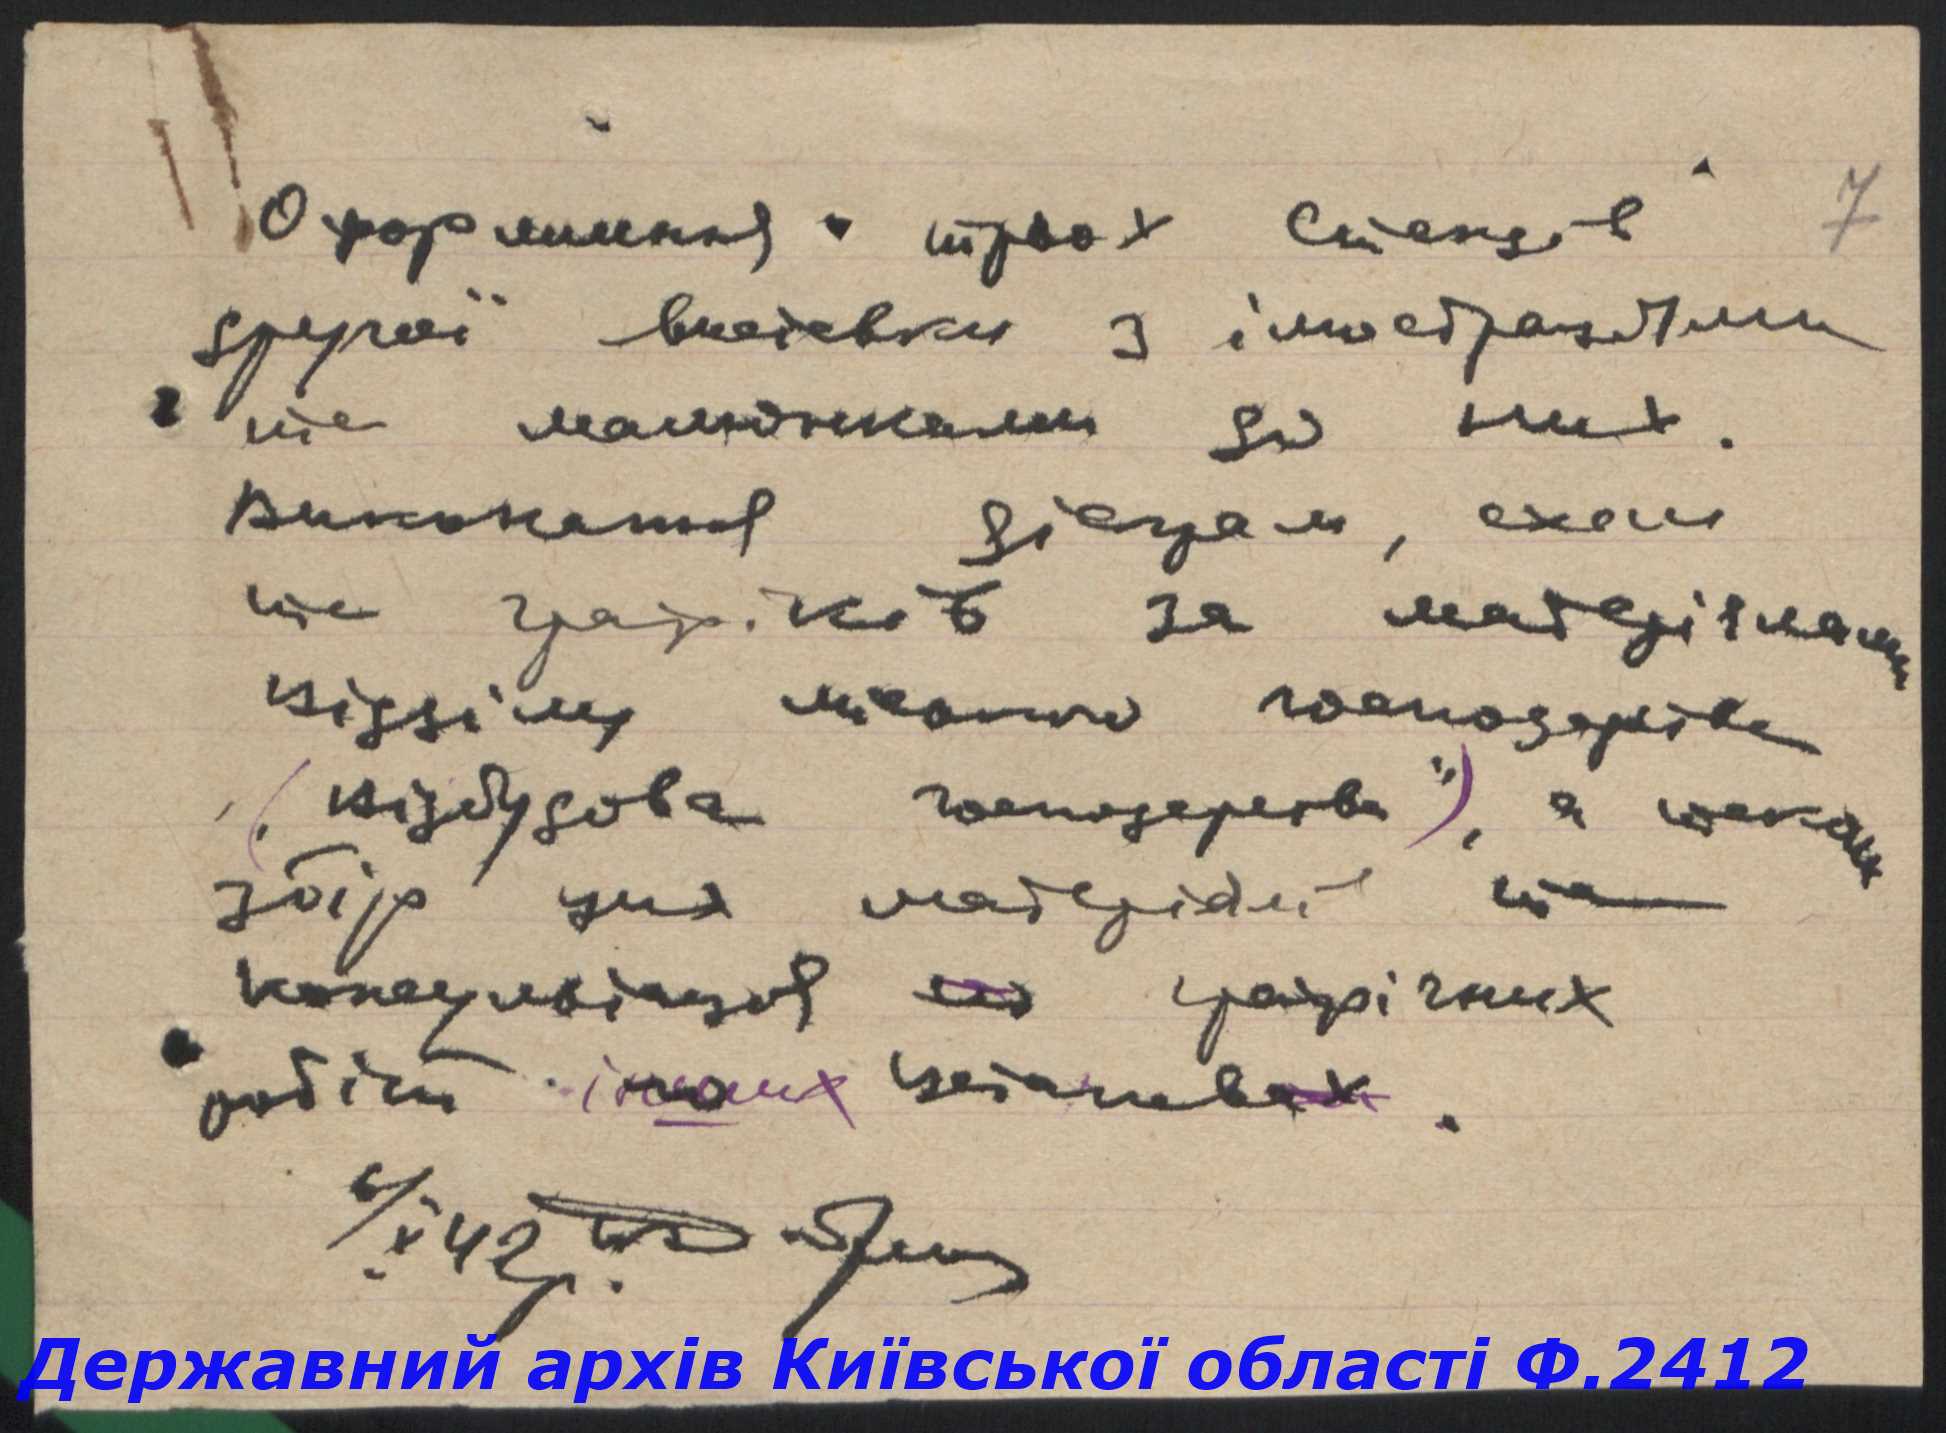 7
Оформлення трьох стендів
другої виставки з ілюстраціями
та малюнками до них.
Виконання діаграм, схем
та графіків за матеріялами
відділу міського господарства
(„Відбудова господарства"), а також
збір цих матеріялів та
консультація по графічних
робіт інших установах.
/X 42 р.
Державний архів Київської області Ф.2412